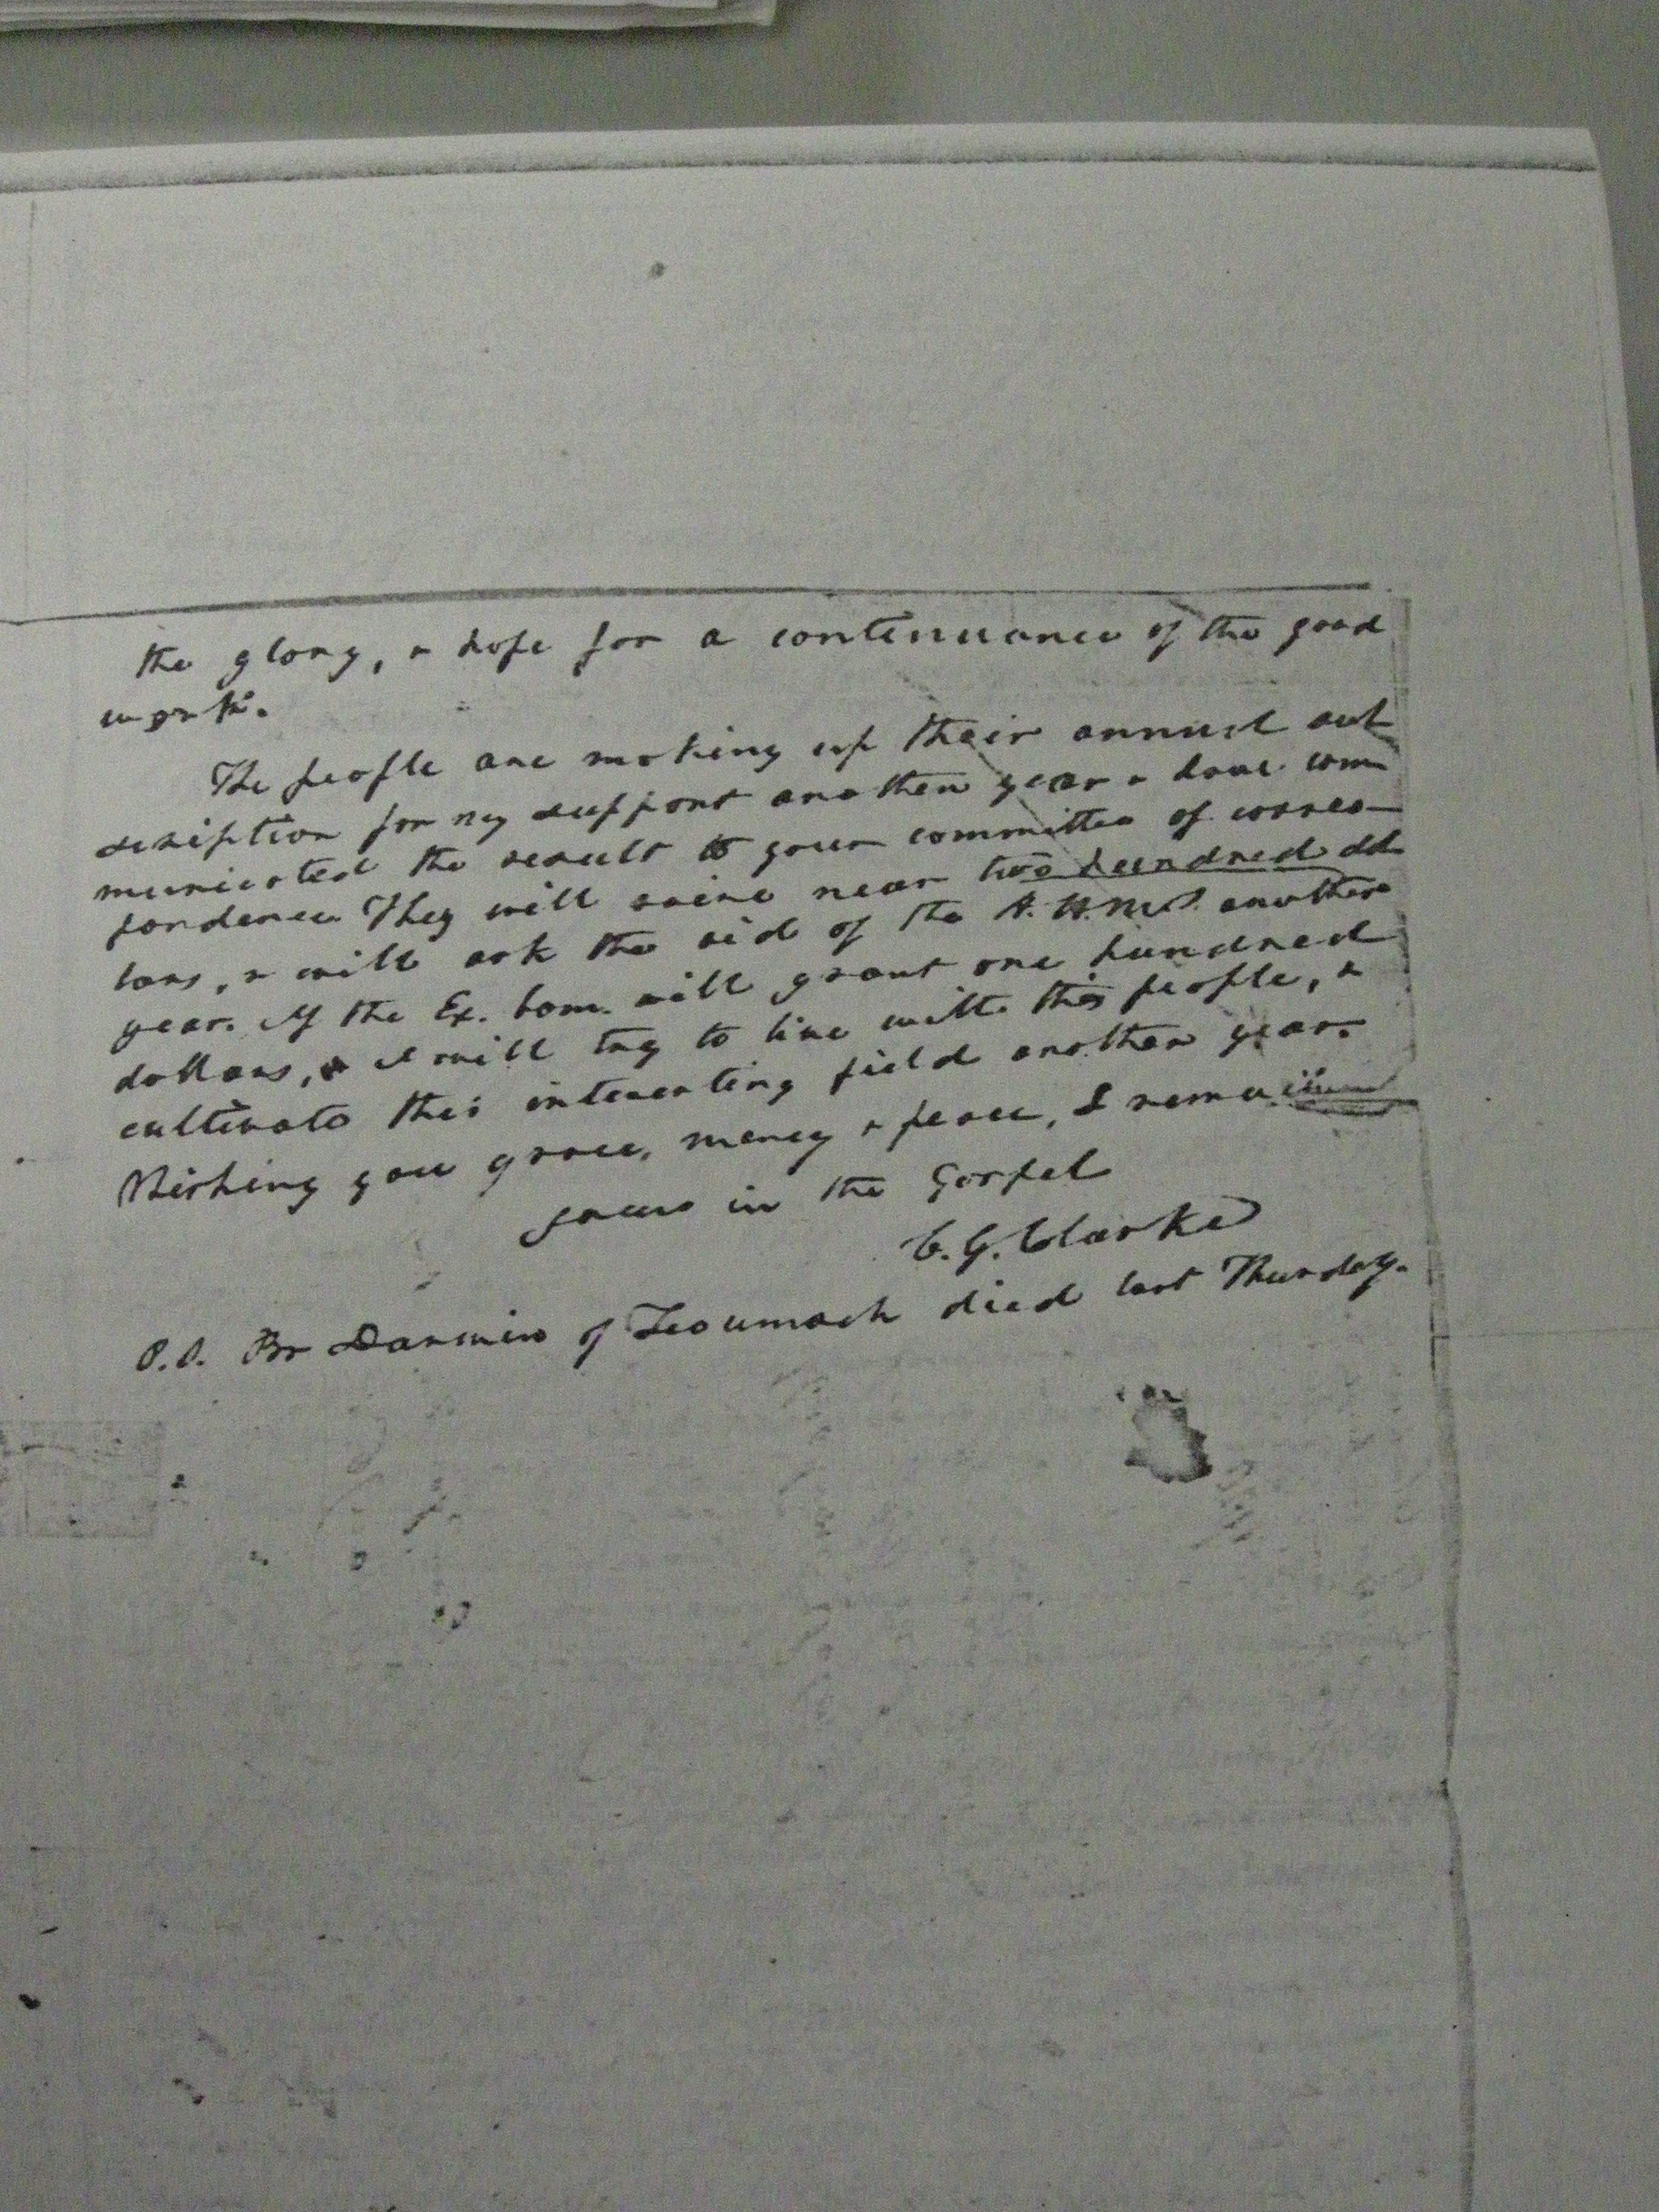 the glory, & hope for a continuance of the good
work.
The people are making up their annual sub
scription for my support another year & have com
municated the result to your committee of corres-
pondence. They will raise near two hundred dol
lars, & will ask the aid of the A. H. M. S. another
year. If the Ex. Com. will grant one hundred
dollars, I will try to live with this people, &
cultivate this interesting field another year.
Wishing you grace, mercy & peace, I remain
yours in the Gospel
C. G. Clarke
P.S. Br Darwin of Tecumach died last Thursday.